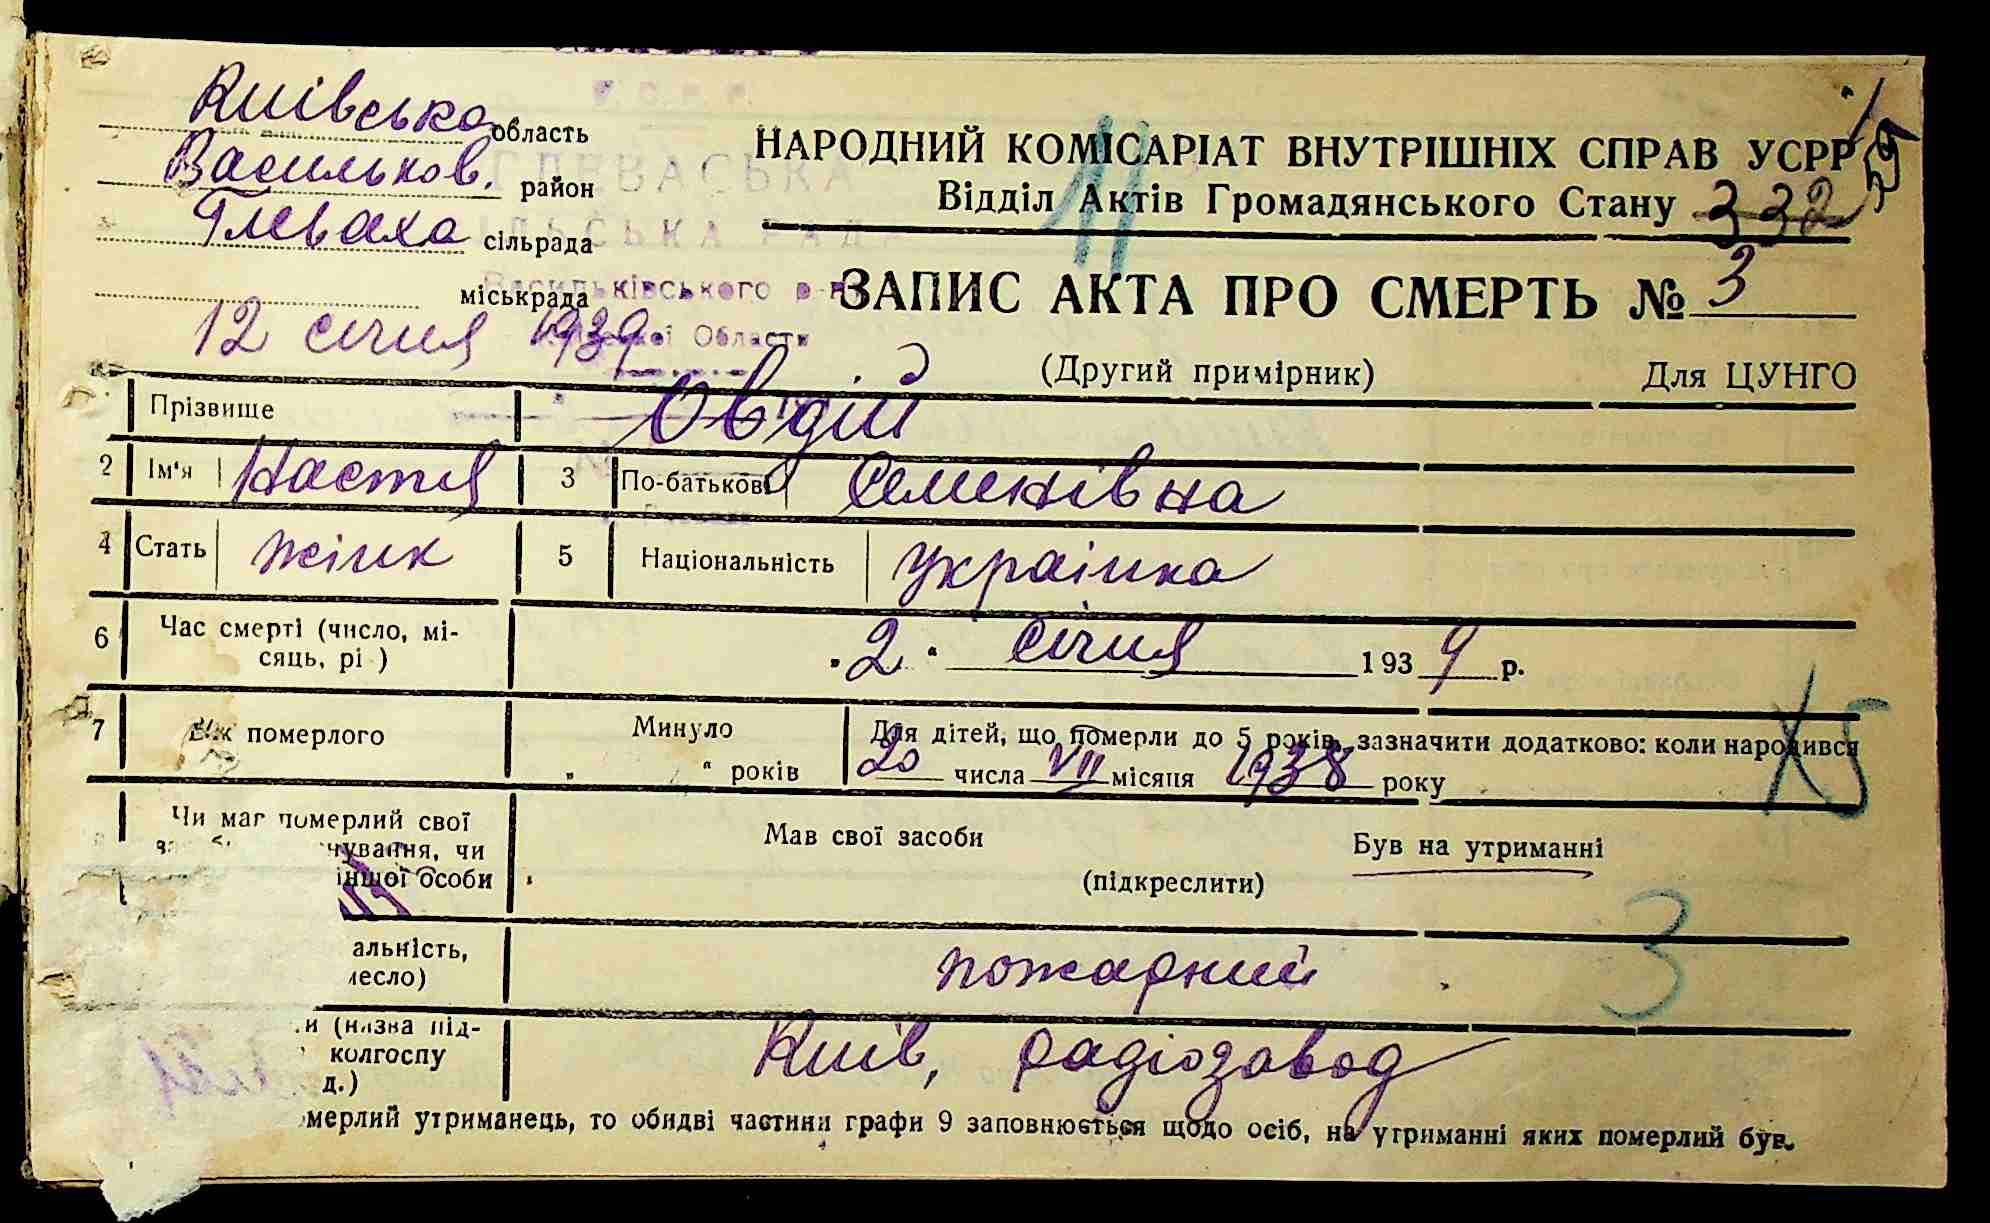 У.С.Р.Р.
Київська область
Васильков. район
Глеваха сільрада
міськрада
ГЛЕВАСЬКА
СІЛЬСЬКА РАДА
Васильківського р-н
Області
12 січня 1939
НАРОДНИЙ КОМІСАРІАТ ВНУТРІШНІХ СПРАВ УСРР
Відділ Актів Громадянського Стану 332
11
ЗАПИС АКТА ПРО СМЕРТЬ № 3
(Другий примірник) Для ЦУНГО
Прізвище Овдій
2 Ім'я Настя 3 По-батькові Семенівна
4 Стать жінк 5 Національність українка
6 Час смерті (число, мі-
сяць, рі ) „2" січня 1939 р.
7 Вік померлого Минуло Для дітей, що померли до 5 років, зазначити додатково: коли народився
„ " років 20 числа VII місяця 1938 року
Х5
Чи мав померлий свої
чування, чи
іншої особи
Мав свої засоби Був на утриманні
(підкреслити)
3
альність,
месло) пожарний
и (назва під-
колгоспу
д.) Київ, радіозавод
мерлий утриманець, то обидві частини графи 9 заповнюється щодо осіб, на утриманні яких померлий був.